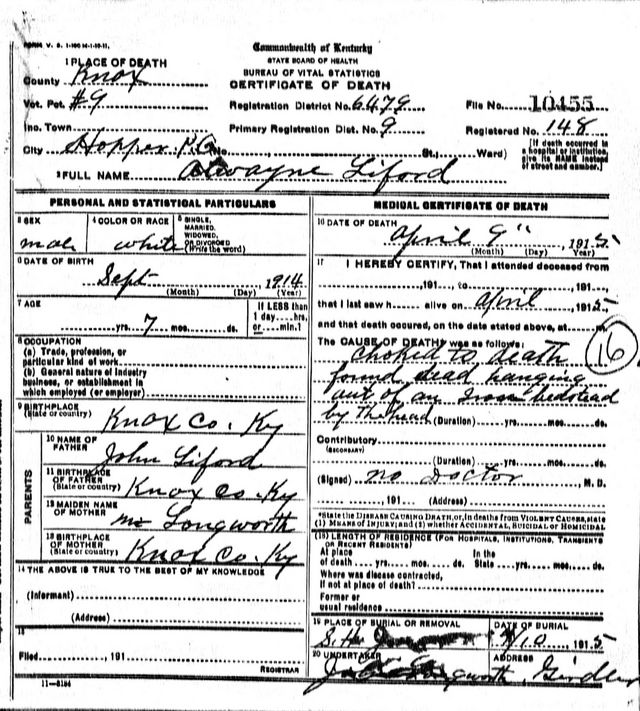 FORM V. S. 1-100 M-1-10-11.
Commonwealth of Kentucky
STATE BOARD OF HEALTH
BUREAU OF VITAL STATISTICS
CERTIFICATE OF DEATH
1 PLACE OF DEATH
County Knox
Vot. Pct. #9
Inc. Town
City Hopper P.O. No. St., Ward)
Registration District No. 6479
Primary Registration Dist. No. 9
File No. 10455
Registered No. 148
[If death occurred in
a hospital or institution,
give its NAME instead
of street and number.]
2 FULL NAME Atwayne Liford
PERSONAL AND STATISTICAL PARTICULARS
3 SEX
male
4 COLOR OR RACE
white
5 SINGLE,
MARRIED,
WIDOWED,
OR DIVORCED
(Write the word)
6 DATE OF BIRTH
Sept 1914
(Month) (Day) (Year)
7 AGE
yrs. 7 mos. ds.
If LESS than
1 day hrs,
or min.?
8 OCCUPATION
(a) Trade, profession, or
particular kind of work
(b) General nature of industry
business, or establishment in
which employed (or employer)
9 BIRTHPLACE
(State or country) Knox Co. Ky
PARENTS
10 NAME OF
FATHER John Liford
11 BIRTHPLACE
OF FATHER
(State or country) Knox Co. Ky
12 MAIDEN NAME
OF MOTHER Longworth
13 BIRTHPLACE
OF MOTHER
(State or country) Knox Co. Ky
14 THE ABOVE IS TRUE TO THE BEST OF MY KNOWLEDGE
(Informant)
(Address)
15
Filed , 191
REGISTRAR
11-8184
MEDICAL CERTIFICATE OF DEATH
16 DATE OF DEATH
April 9" , 1915
(Month) (Day) (Year)
17 I HEREBY CERTIFY, That I attended deceased from
, 191 , to , 191 ,
that I last saw h alive on April , 1915
and that death occured, on the date stated above, at m.
The CAUSE OF DEATH was as follows:
choked to death
found dead hanging
out of an Iron bedstead
by The head (Duration) yrs. mos. ds.
16
Contributory
(SECONDARY)
(Duration) yrs. mos. ds.
(Signed) no Doctor M. D.
, 191 (Address)
*State the DISEASE CAUSING DEATH, or, in deaths from VIOLENT CAUSES, state
(1) MEANS OF INJURY; and (2) whether ACCIDENTAL, SUICIDAL or HOMICIDAL
(18) LENGTH OF RESIDENCE (FOR HOSPITALS, INSTITUTIONS, TRANSIENTS
OR RECENT RESIDENTS)
At place
of death yrs. mos. ds.
In the
State yrs. mos. ds.
Where was disease contracted,
if not at place of death?
Former or
usual residence
19 PLACE OF BURIAL OR REMOVAL
DATE OF BURIAL
4/10 , 1915
20 UNDERTAKER
ADDRESS
Girdler